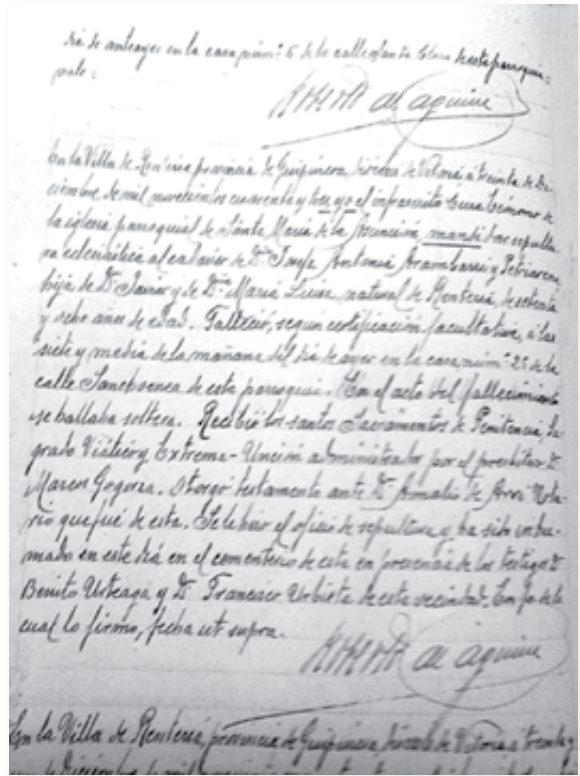 día de anteayer en la casa núm.º 6 de la calle Santa Clara de esta parroquia:
vale=
Roberto de Aguirre
En la Villa de Rentería, provincia de Guipúzcoa, diócesis de Vitoria á treinta de Di-
ciembre de mil novecientos cuarenta y tres, yo el infrascrito Cura Ecónomo de
la iglesia parroquial de Santa María de la Asunción, mandé dar sepultu-
ra eclesiástica al cadáver de D.ª Josefa Antonia Arambarri y Petriarena
hija de D. Javier y de D.ña María Luisa, natural de Rentería, de setenta
y ocho años de edad. Falleció, según certificación facultativa, á las
siete y media de la mañana del día de ayer en la casa núm.º 25 de la
calle Sancboenea de esta parroquia. En el acto del fallecimiento
se hallaba soltera. Recibió los santos Sacramentos de Penitencia, Sa-
grado Viático y Extrema-Unción administrados por el presbítero D.
Marcos Gogorza. Otorgó testamento ante D. Amalio de Nota-
rio que fué de esta. Se celebró el oficio de sepultura y ha sido inhu-
mado en este día en el cementerio de esta en presencia de los testigos D.
Benito Urteaga y D. Francisco Urbieta de esta vecindad. En fe de lo
cual lo firmo, fecha ut supra.
Roberto de Aguirre
En la Villa de Rentería, provincia de Guipúzcoa, diócesis de Vitoria á treinta y
uno de Diciembre de mil